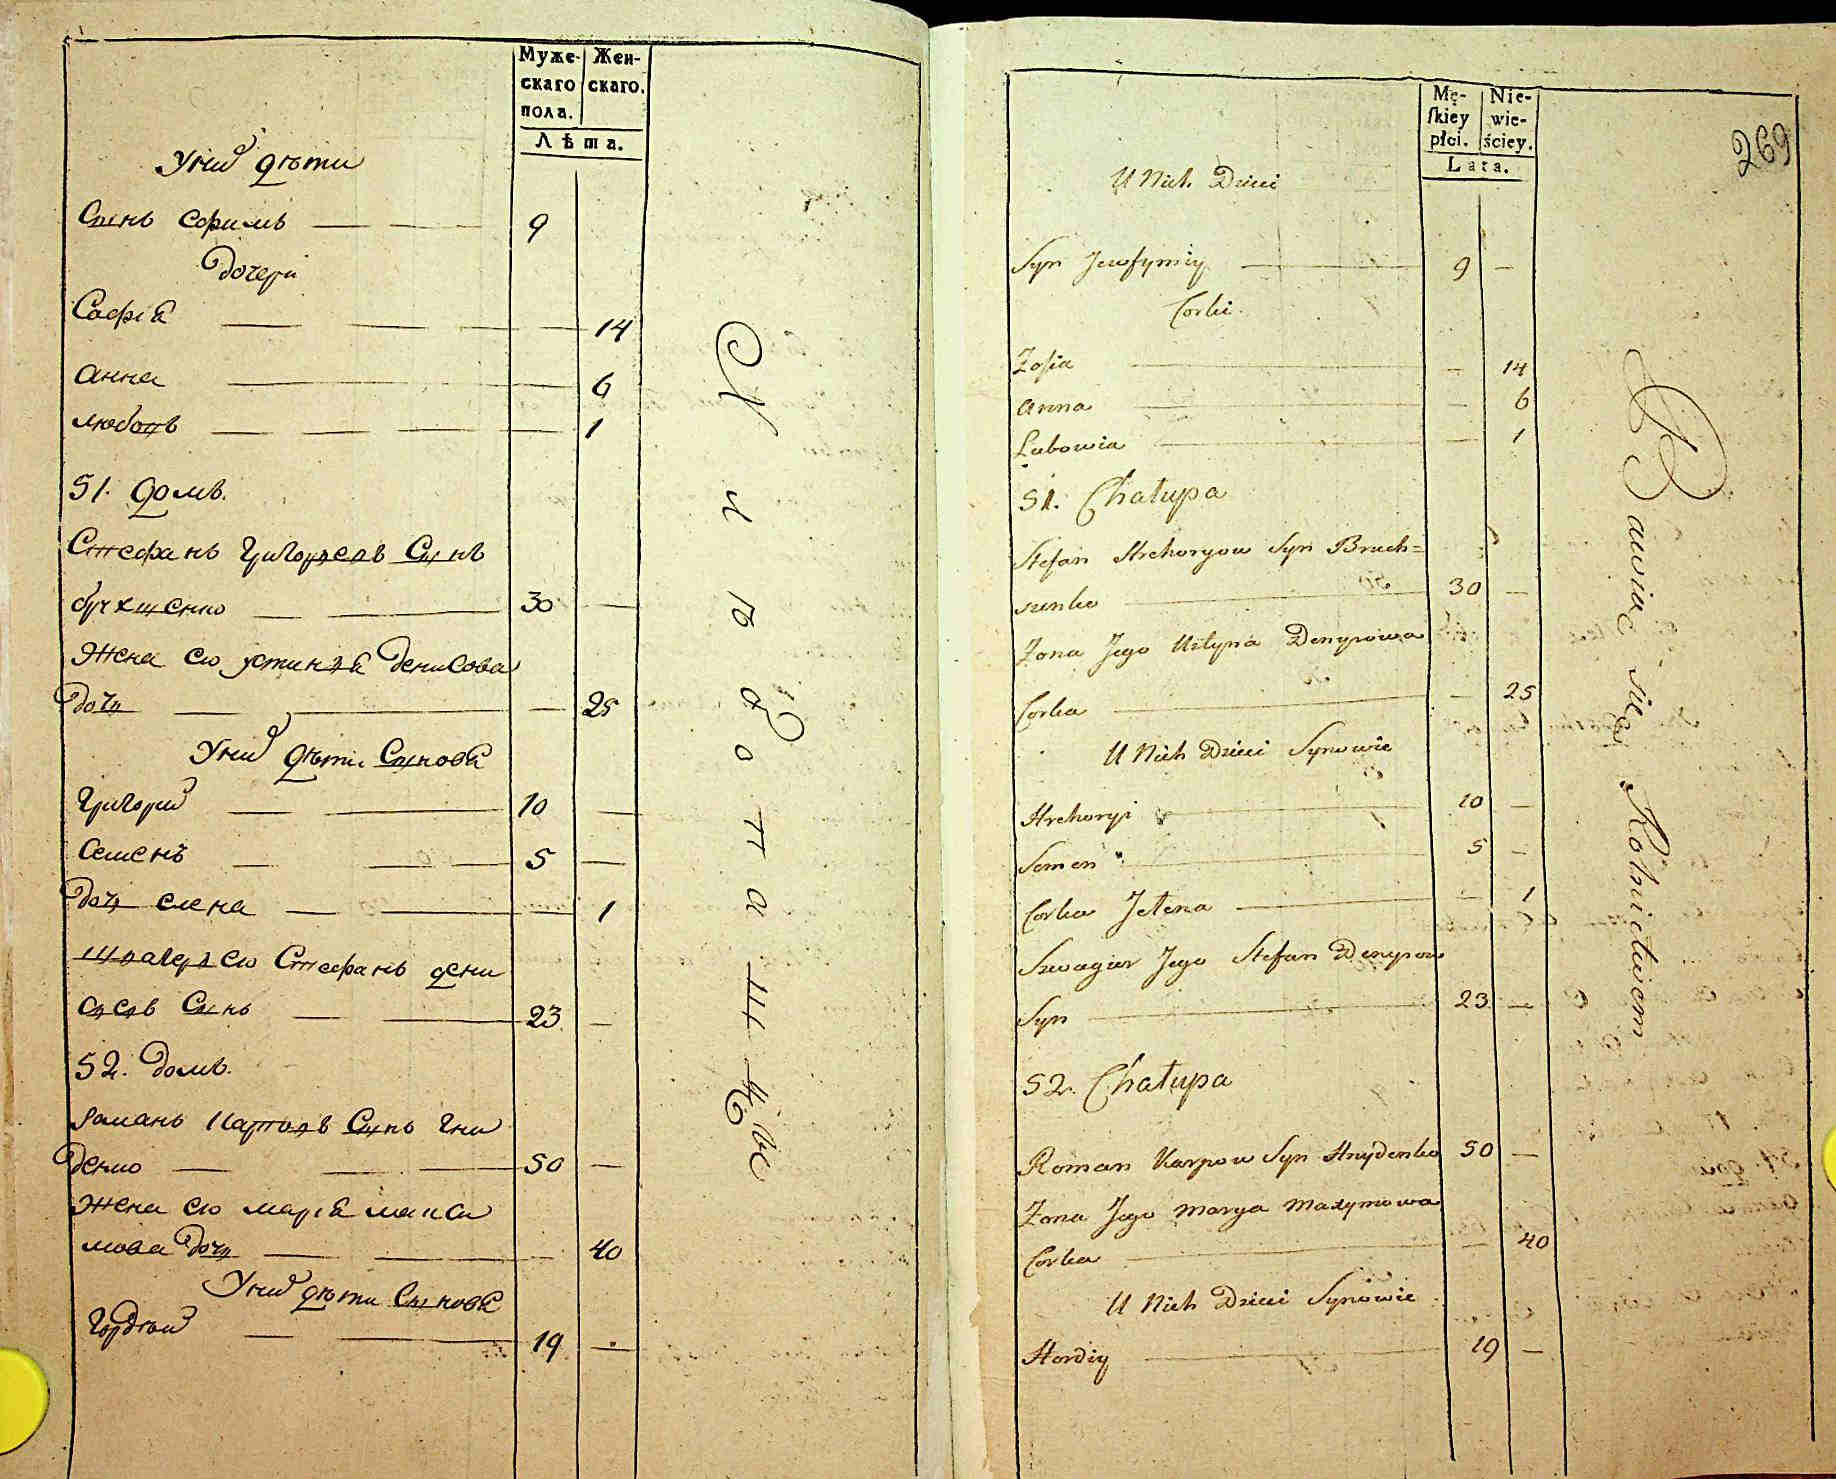 Муже-
скаго
пола.
Жен-
скаго.
Лѣта.
У нихъ дѣти
Сынъ Ефимъ 9
Дочери
Софiя 14
Анна 6
Любовь 1
51. домъ.
Стефанъ Григорьевъ Сынъ
Бученко 30
Жена его устинья денисова
дочь 25
У нихъ дѣти Сыновя
Григорий 10
Семенъ 5
дочь елена 1
швагерь его Стефанъ дени
совъ Сынъ 23
52. домъ.
Романъ Карповъ Сынъ Гни
денко 50
Жена его марiя макси
мова дочь 40
У нихъ дѣти Сыновя
Гордѣй 19
Хлѣбопашцѣ
269
Mę-
skiey
płci.
Nie-
wie-
ściey.
Lata.
U Nich Dzieci
Syn Jewfymiy 9
Corki
Zosia 14
Anna 6
Lubowia 1
51. Chałupa
Stefan Hrehoryow Syn Bruch=
szenko 30
Zona Jego Ustyna Denysowa
Corka 25
U Nich Dzieci Synowie
Hrehoryi 10
Semen 5
Corka Jelena 1
Szwagier Jego Stefan Denysow
Syn 23
52. Chałupa
Roman Karpow Syn Hnydenko 50
Zona Jego Marya Maxymowa
Corka 40
U Nich Dzieci Synowie
Hordiy 19
Bawiąc się Rolnictwem